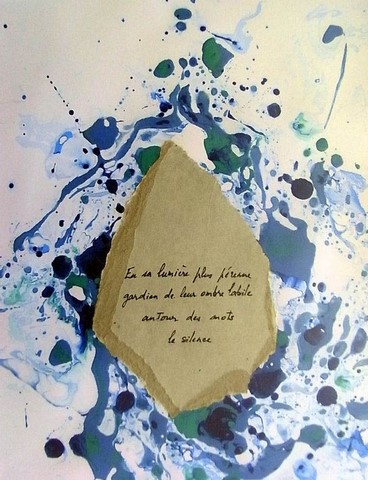 En sa lumière plus pérenne
gardien de leur ombre labile
autour des mots
le silence